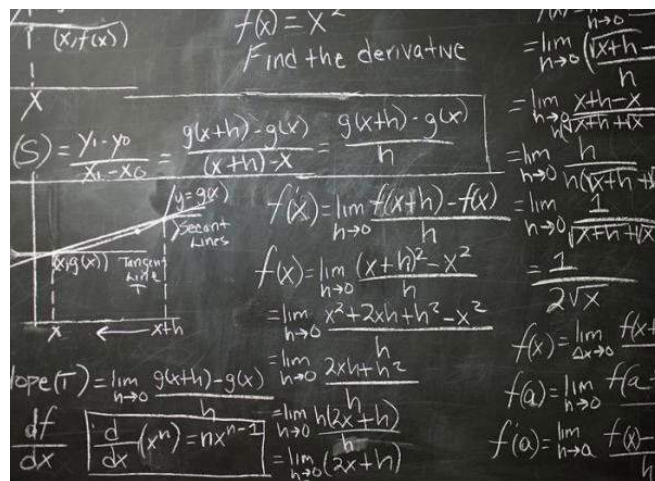 (x, f(x))
X
(S) = y₁-y₀/x₁-x₀ = g(x+h)-g(x)/(x+h)-x = g(x+h)-g(x)/h
y=g(x)
Secant
Lines
x, g(x))
Tangent
Line
T
x ← x+h
lope(T) = lim h→0 g(x+h)-g(x)/h
df/dx
d/dx (xⁿ) = nxⁿ⁻¹
f(x) = x²
Find the derivative
f'(x) = lim h→0 f(x+h)-f(x)/h
f(x) = lim h→0 (x+h)²-x²/h
= lim h→0 x²+2xh+h²-x²/h
= lim h→0 2xh+h²/h
= lim h→0 h(2x+h)/h
= lim h→0 (2x+h)
h→0
= lim h→0 (√x+h -/h
= lim h→0 x+h-x/
= lim h→0 h/h(√x+h +
= lim h→0 1/√x+h +√x
= 1/2√x
f(x) = lim Δx→0 f(x+
f(a) = lim h→0 f(a
f'(a) = lim h→a f(x)-/h